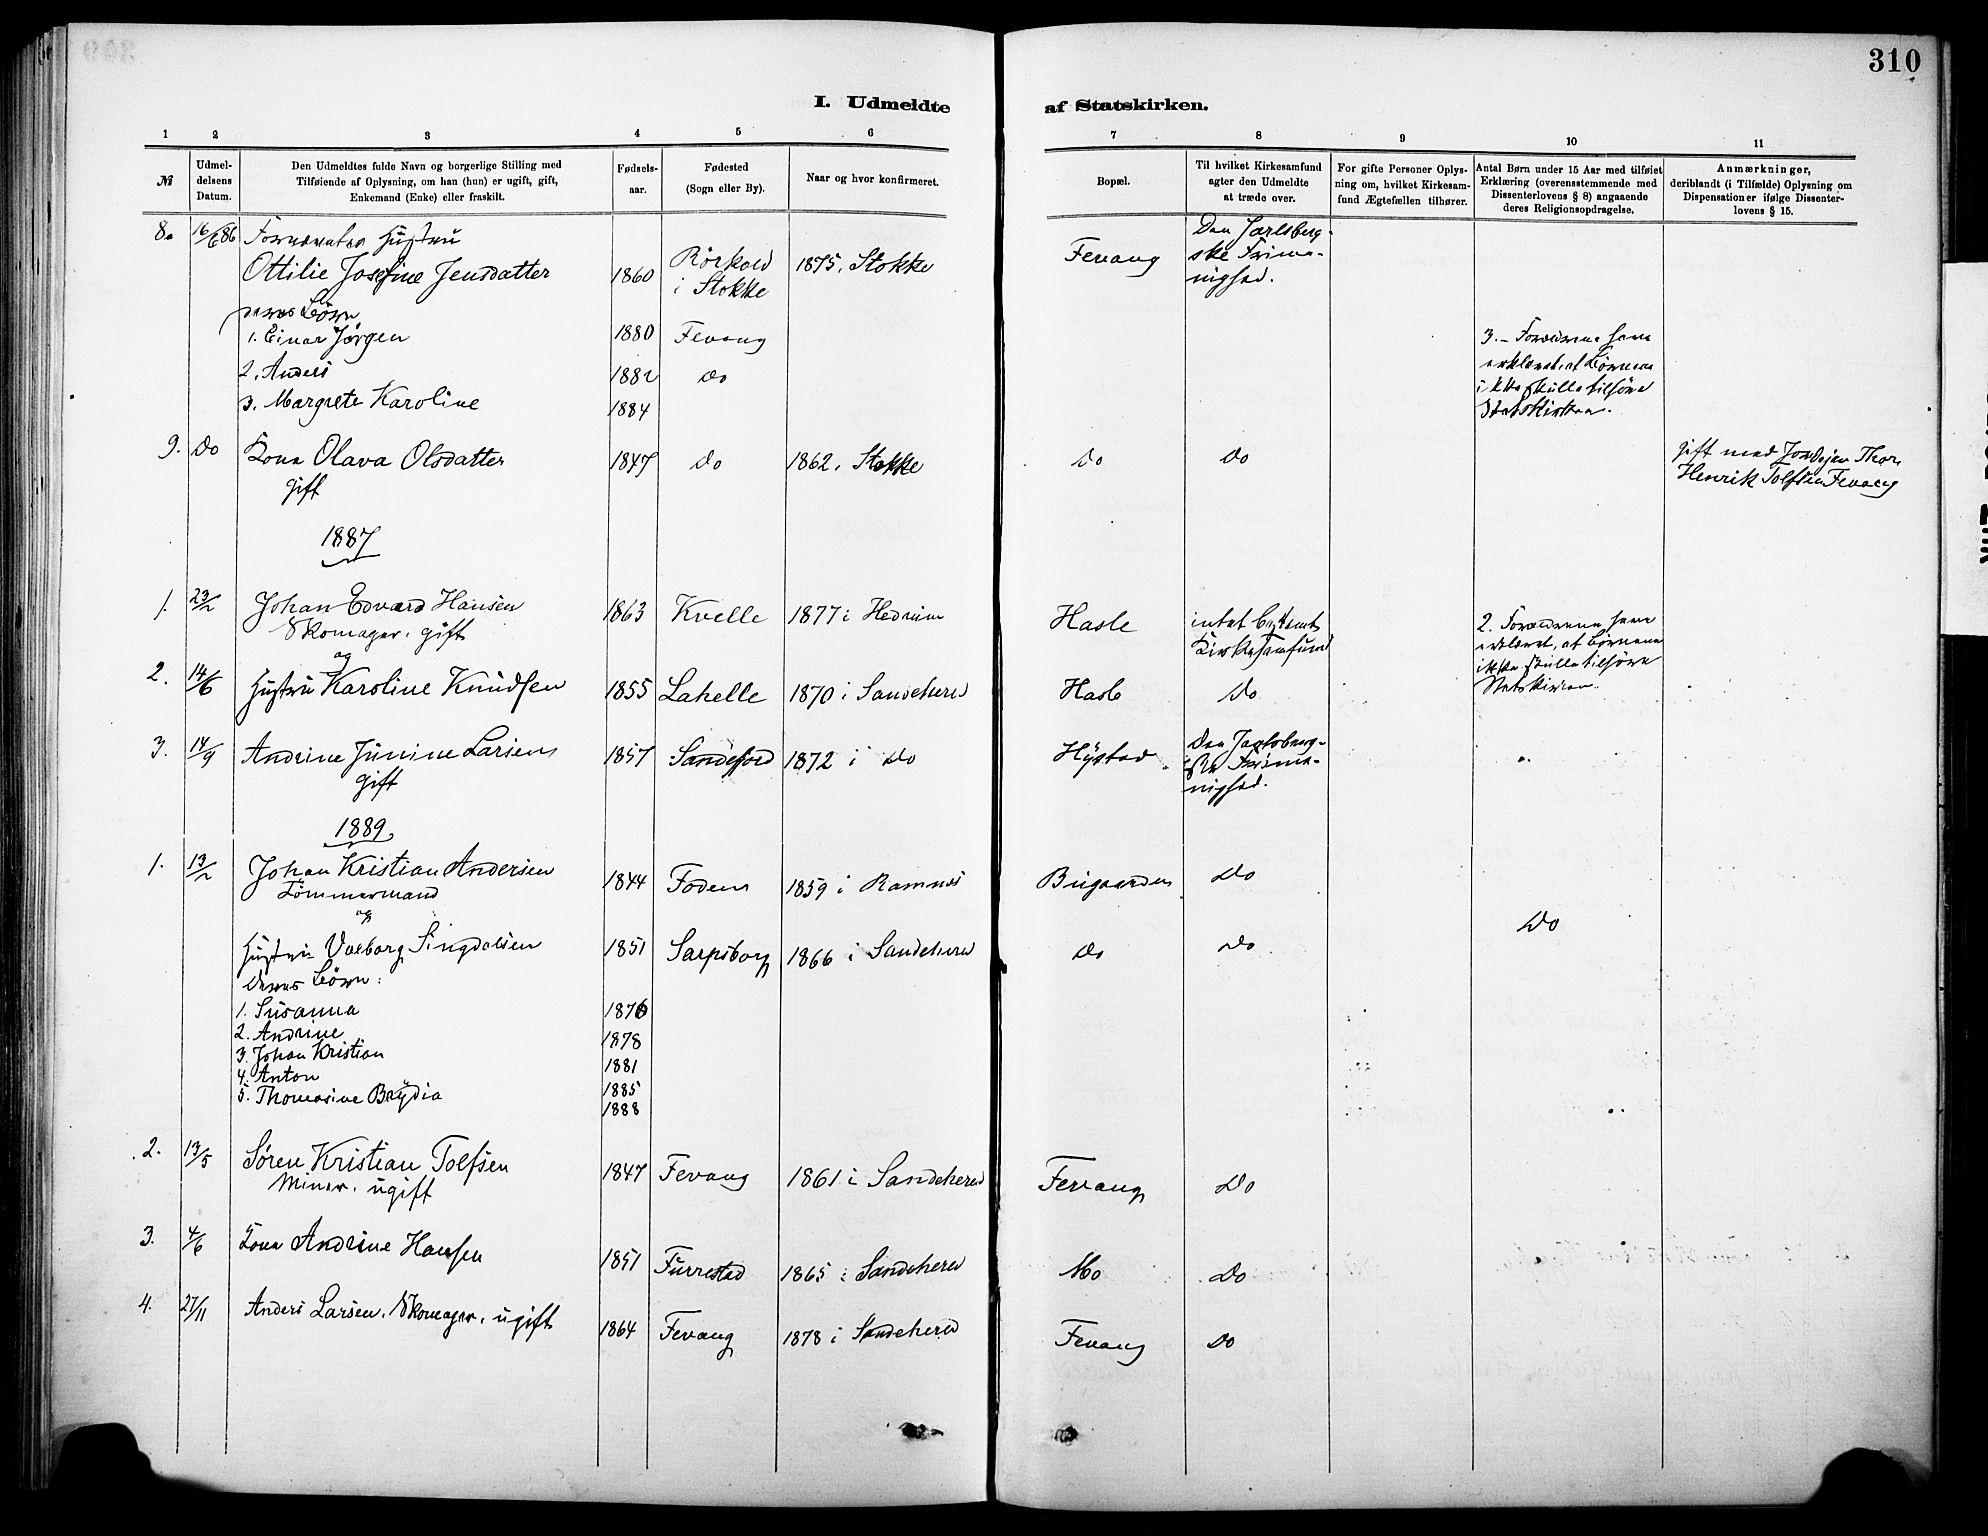 310
I. Udmeldte af Statskirken.
1 2 3 4 5 6 7 8 9 10 11
№
Udmel-
delsens
Datum.
Den Udmeldtes fulde Navn og borgerlige Stilling med
Tilføiende af Oplysning, om han (hun) er ugift, gift,
Enkemand (Enke) eller fraskilt.
Fødsels-
aar.
Fødested
(Sogn eller By).
Naar og hvor konfirmeret.
Bopæl.
Til hvilket Kirkesamfund
agter den Udmeldte
at træde over.
For gifte Personer Oplys-
ning om, hvilket Kirkesam-
fund Ægtefællen tilhører.
Antal Børn under 15 Aar med tilføiet
Erklæring (overensstemmende med
Dissenterlovens § 8) angaaende
deres Religionsopdragelse.
Anmærkninger,
deriblandt (i Tilfælde) Oplysning om
Dispensationer ifølge Dissenter-
lovens § 15.
8. 16/6 86 Fornævntes Hustru
Ottilie Josefine Jensdatter 1860 Rörkold i Stokke 1875, Stokke Fevang Den Jarlsberg-
ske Frime-
nighed.
deres Børn
1. Einar Jørgen 1880 Fevang
2. Anders 1882 do
3. Margrete Karoline 1884
3.- Forældrene have
erklæret, at Børnene
ikke skulle tilhöre
Statskirken.
9. Do Kone Olava Olsdatter 1847 do 1862, Stokke do do
gift
gift med Jordejer Thor
Henrik Tolfsen Fevang
1887
1. 23/2 Johan Edvard Hansen 1863 Kvelle 1877 i Hedrum Hasle intet bestemt
Kirkesamfund
Skomager. gift
og
2. Forældrene have
erklæret, at Børnene
ikke skulle tilhöre
Statskirken.
2. 14/6 Hustru Karoline Knudsen 1855 Lahelle 1870 i Sandeherred Hasle Do
3. 14/9 Andrine Junine Larsen 1857 Sandefjord 1872 i Do Hystad Den Jarlsberg-
ske Frime-
nighed.
gift
1889
1. 13/2 Johan Kristian Andersen 1844 Foden 1859 i Ramnes Bugaarden Do
Tömmermand
og
Do
Hustru Valborg Singdalsen 1851 Sarpsborg 1866 i Sandeherred do do
Deres Børn:
1. Susanna 1876
2. Andrine 1878
3. Johan Kristian 1881
4. Anton 1885
5. Thomasine Brydia 1888
2. 13/5 Søren Kristian Tolfsen 1847 Fevang 1861 i Sandeherred Fevang Do
Miner. ugift
3. 4/6 Kone Andrine Hansen 1851 Furrestad 1865 i Sandeherred Mo Do
4. 27/11 Anders Larsen. Skomager. ugift 1864 Fevang 1878 i Sandeherred Fevang Do